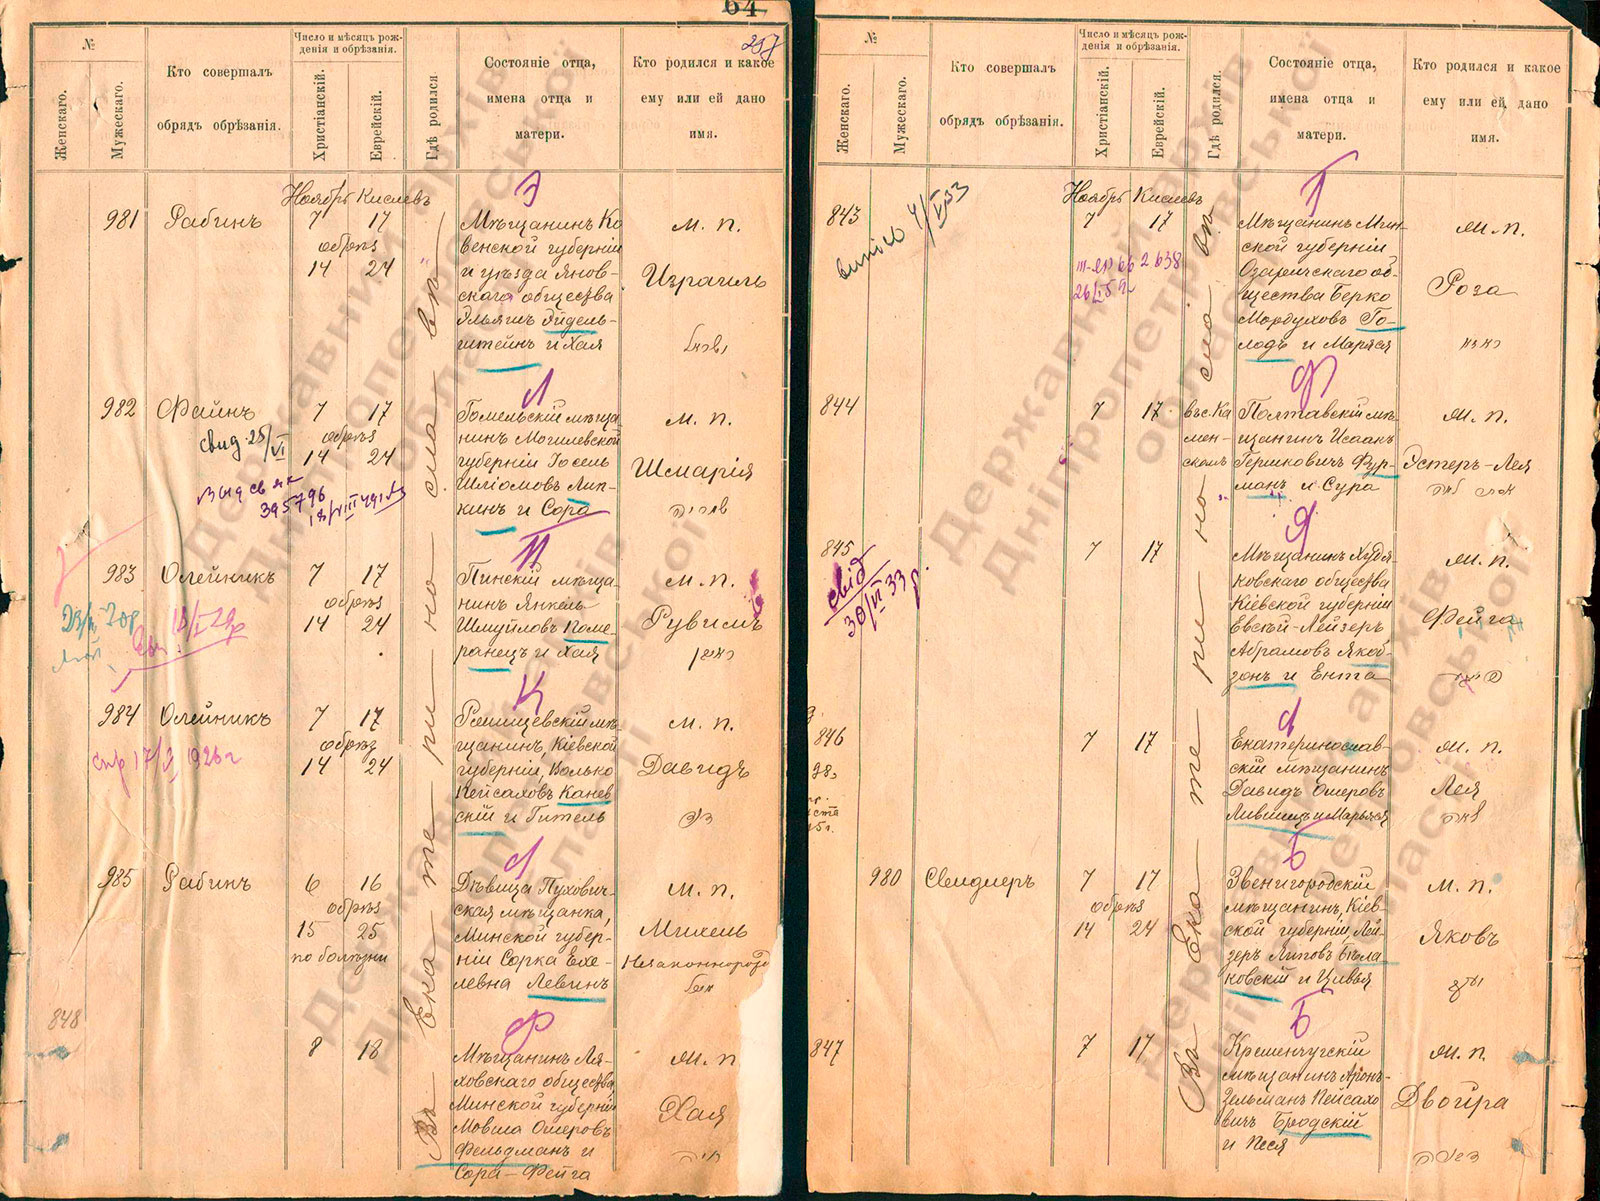 64
257
№
Женскаго.
Мужескаго.
Кто совершалъ
обрядъ обрѣзанія.
Число и мѣсяцъ рож-
денія и обрѣзанія.
Христіанскій.
Еврейскій.
Гдѣ родился.
Состояніе отца,
имена отца и
матери.
Кто родился и какое
ему или ей дано
имя.
Ноябрь Кислевъ
Въ Екатеринославѣ
Э
981 Рабинъ 7 17
обрѣз
14 24
Мѣщанинъ Ко
венской губерніи
и уѣзда Янов-
скаго общества
Эльяшъ Эйдель-
штейнъ и Хая
м. п.
Израиль
Л
982 Файнъ 7 17
обрѣз
14 24
свид 25/VI
395796
Гомельскій мѣща
нинъ Могилевской
губерніи Іосель
Шліомовъ Лип-
кинъ и Сора
м. п.
Шмарія
П
983 Олейникъ 7 17
обрѣз
14 24
Пинскій мѣща-
нинъ Янкель
Шмуйловъ Поме-
ранецъ и Хая
м. п.
Рувимъ
К
984 Олейникъ 7 17
обрѣз
14 24
спр 17/X 1926 г
щанинъ, Кіевской
губерніи, Волько
Кейсаховъ Канев
скій и Гитель
м. п.
Давидъ
דוד
Л
985 Рабинъ 6 16
обрѣз
15 25
по болѣзни
Дѣвица Пухович-
ская мѣщанка,
Минской губер-
ніи Сорка Ехе-
левна Левинъ
м. п.
Михель
Незаконнорожд
848
8 18
Ф
Мѣщанинъ Ля-
ховскаго общества
Минской губерніи
Мовша Ошеровъ
Фельдманъ и
Сора-Фейга
м. п
Хая
חיה
№
Женскаго.
Мужескаго.
Кто совершалъ
обрядъ обрѣзанія.
Число и мѣсяцъ рож-
денія и обрѣзанія.
Христіанскій.
Еврейскій.
Гдѣ родился.
Состояніе отца,
имена отца и
матери.
Кто родился и какое
ему или ей дано
имя.
Ноябрь Кислевъ
Въ Екатеринославѣ
Г
843 7 17
Мѣщанинъ Мин-
ской губерніи
Озаричскаго об-
щества Берко
Мордуховъ Го-
лодъ и Маряся
м. п.
Роза
Ф
844 7 17
въ с. Ка
мен-
скомъ
Полтавскій мѣ-
щанинъ Исаакъ
Гершковичъ Фур-
манъ и Сура
м. п.
Эстеръ-Лея
Я
845 7 17
свід
30/VI 33 р.
Мѣщанинъ Худя
ковскаго общества
Кіевской губерніи
Евсѣй-Лейзеръ
Абрамовъ Якоб-
зонъ и Ента
м. п.
Фейга
Л
846 7 17
Екатеринослав-
скій мѣщанинъ
Давидъ Ошеровъ
Лившицъ и Марьяся
м. п.
Лея
Б
980 Свидлеръ 7 17
обрѣз
14 24
Звенигородскій
мѣщанинъ, Кіев-
ской губерніи, Лей-
зеръ Липовъ Бѣла
ковскій и Цивья
м. п.
Яковъ
Б
847 7 17
Кременчугскій
мѣщанинъ Аронъ-
Зельманъ Пейсахо
вичъ Бродскій
и Песя
м. п.
Двойра
Державний архів
Дніпропетровської
області